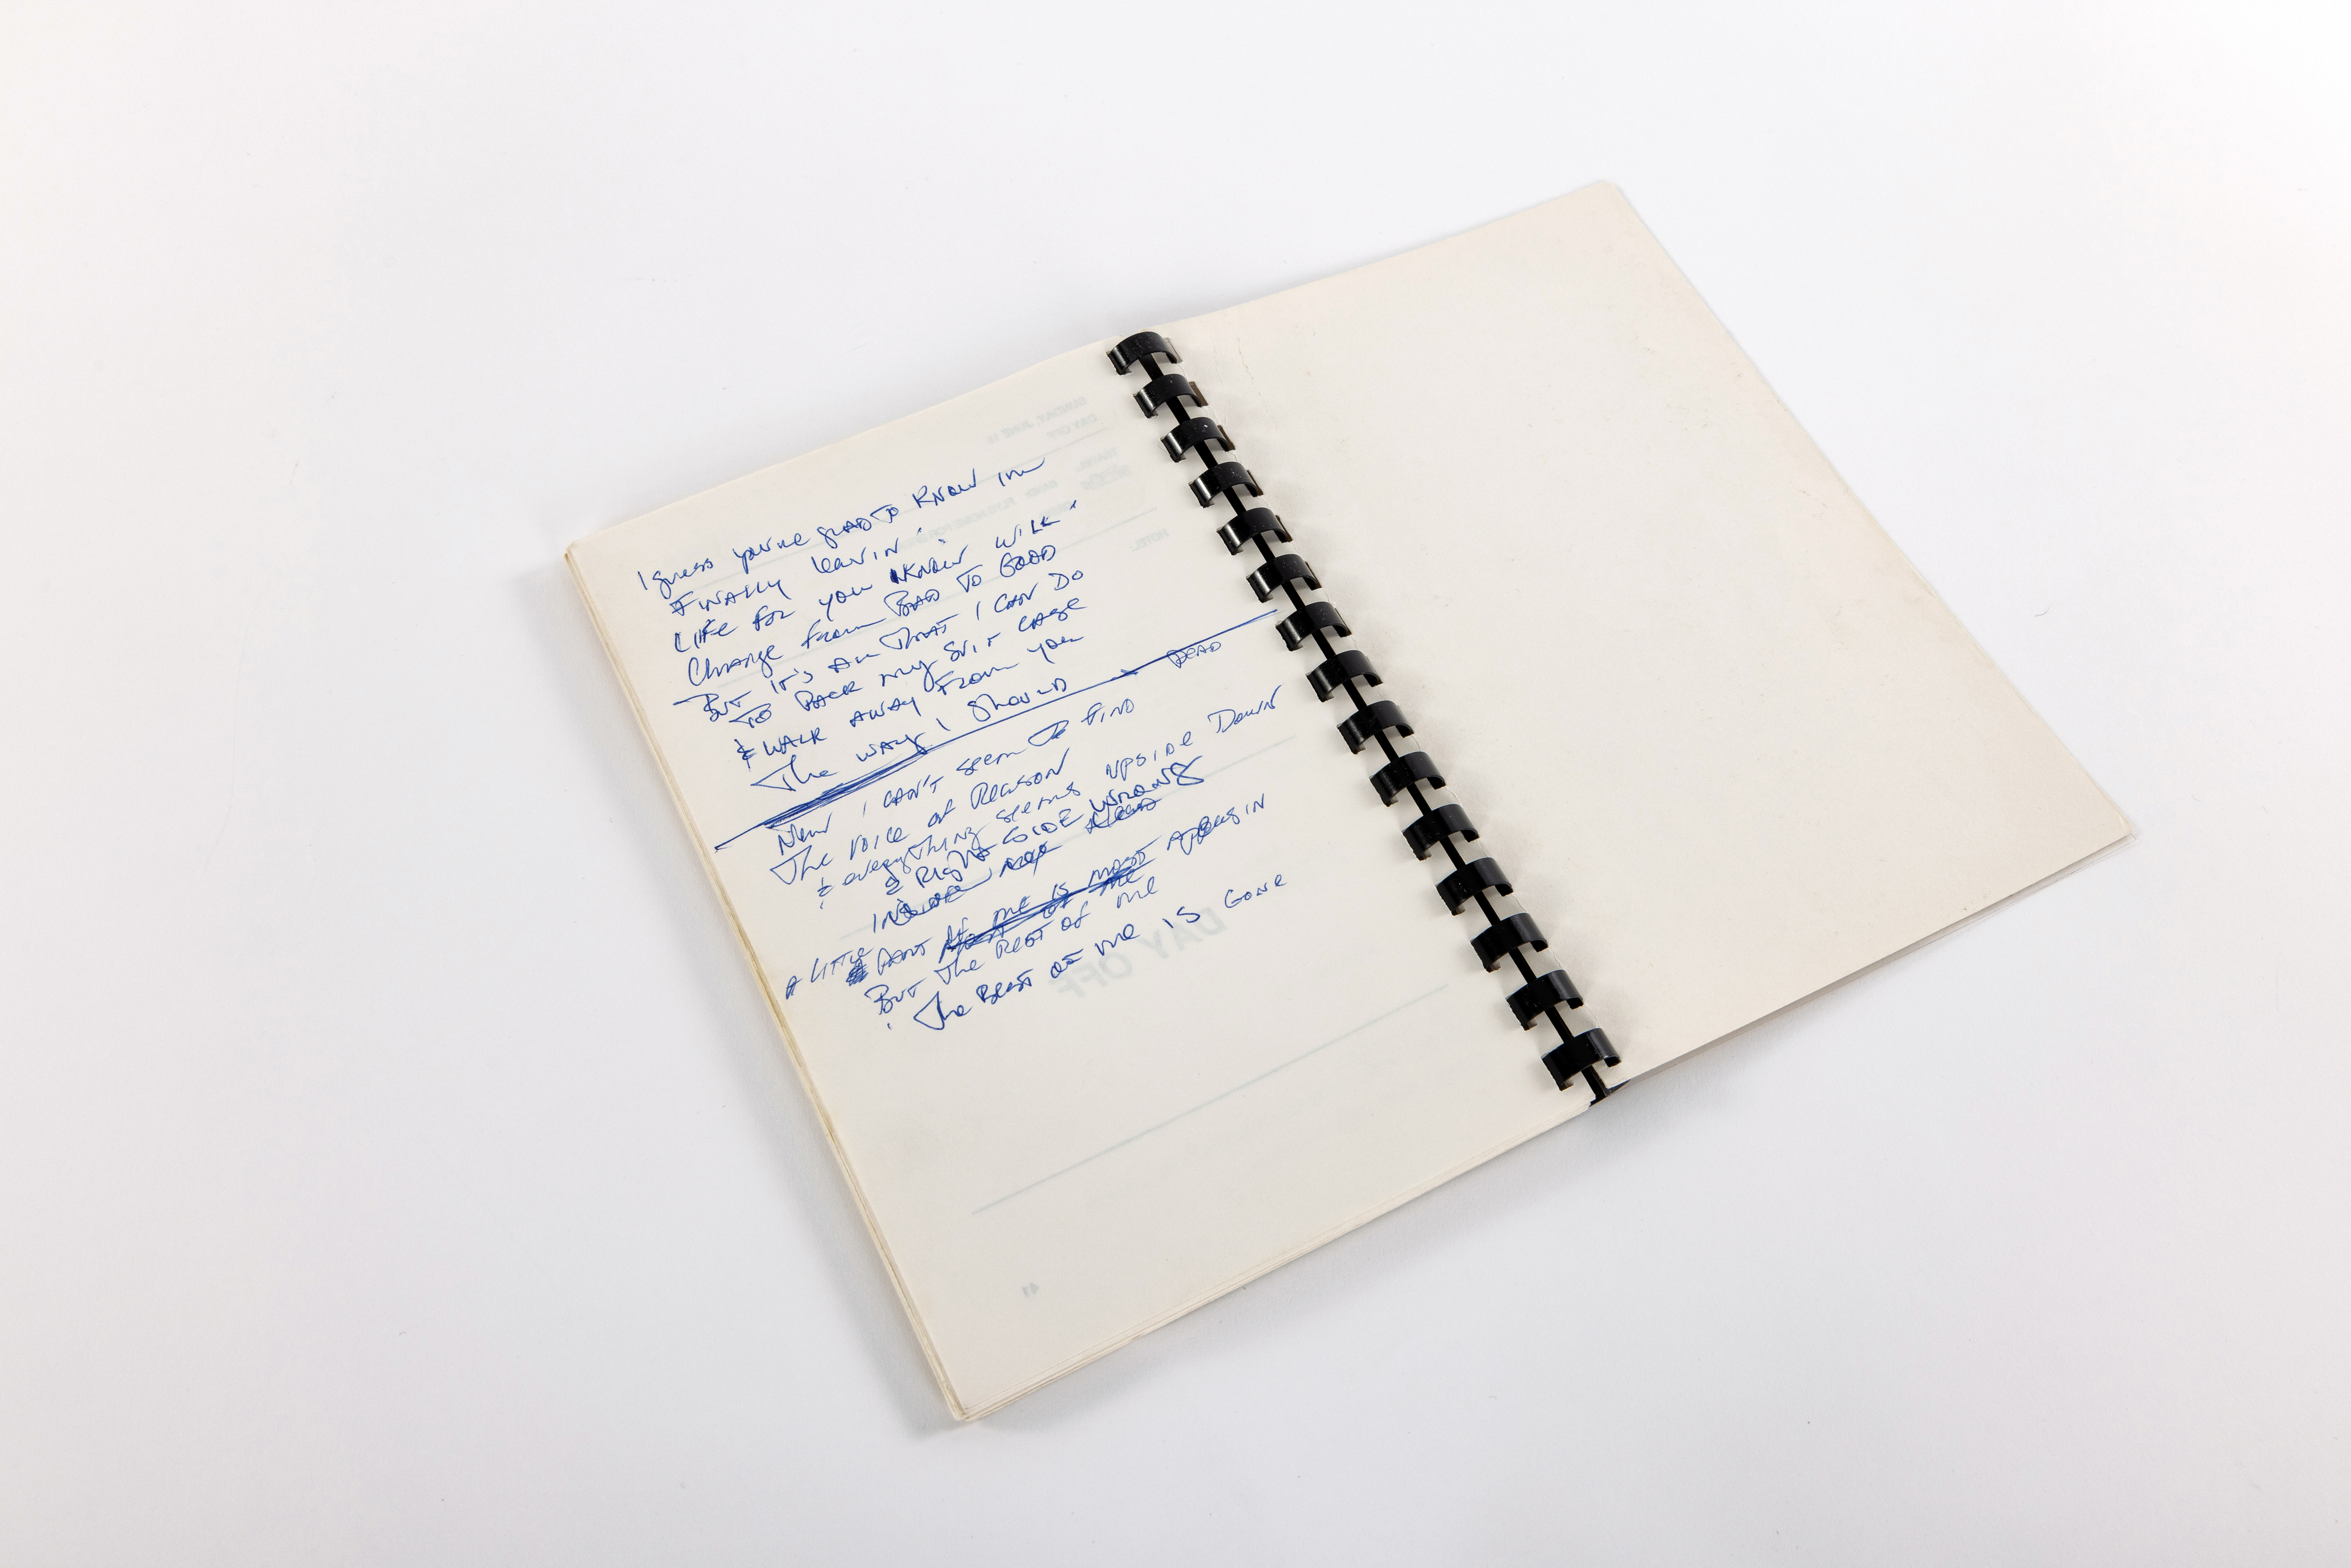 I guess you're glad to know im
Finally leavin'
Life for you know will
Change from Bad to Good
But it's all that I can do
To Pack my suit case
& walk away from you
The way I should
Dead
Now I can't seem to find
The voice of Reason
& everything seems upside Down
& Right SIDE Wrong
Inside my Head
A little
Part of me is most Appears in
But The Rest of me
The Best of me is Gone
SUNDAY, JUNE
DAY OFF
TRAVEL:
HOTEL:
DAY OFF
41